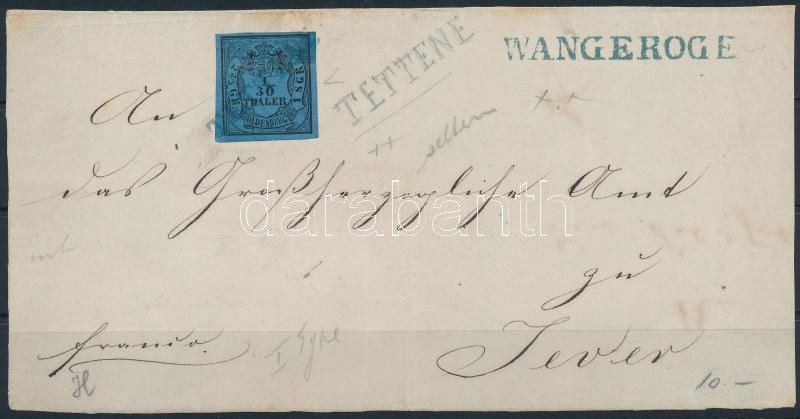 WANGEROGE
TETTENE
1/30
THALER
OLDENBURG
1 SGR
An
das Großherzogliche Amt
zu
Jever
franco.
selten
I Type
H
10.–
darabanth